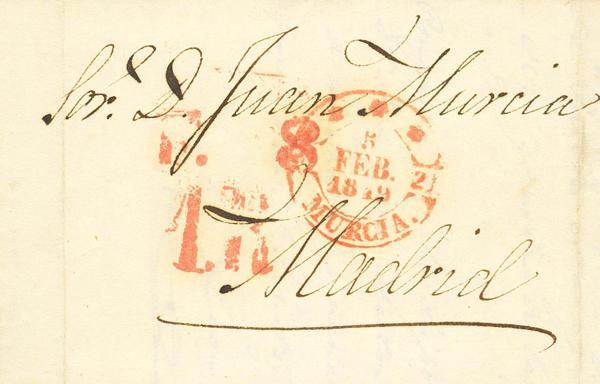 Sor. D. Juan Murcia
5
FEB.
1849
MURCIA.
Madrid